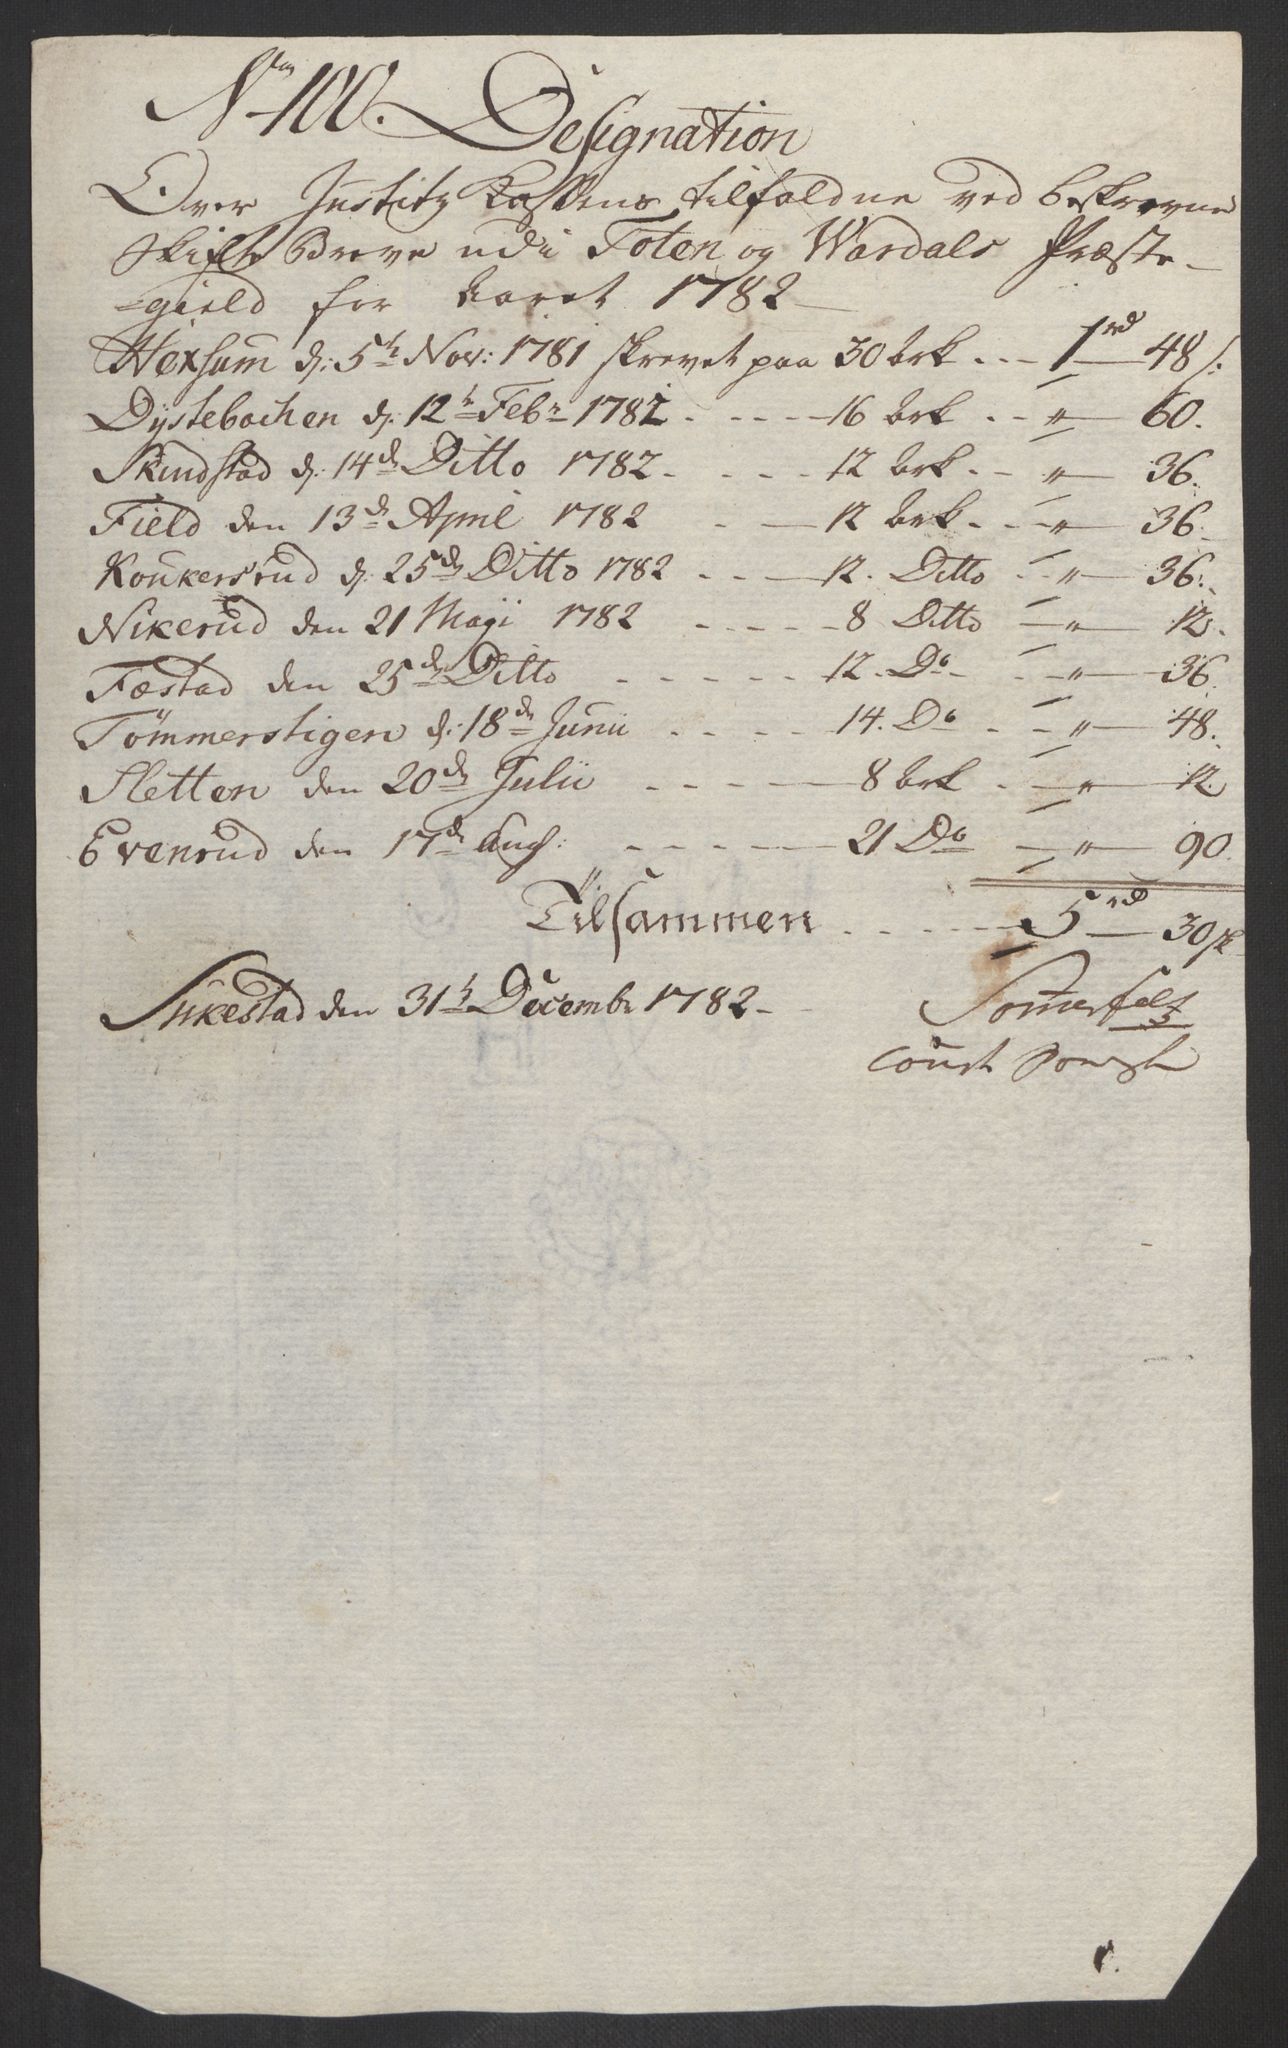 No 100. Designation
Over Justitz Kassens tilfaldne ved beskrevne
Skifte Breve udi Toten og Wardals Præste-
=gield for Aaret 1782
Hexsum d: 5te Nov: 1781 skrevet paa 30 Ark . . - 1 rd — 48 s:
Dystebachen d: 12te Febr 1782 . - - - - 16 Ark . . - " — 60.
Skundstad d: 14de Ditto 1782 . - - - - 12 Ark . - - " — 36.
Field den 13de April 1782 - - - 12 Ark . - - " — 36.
Koukersrud d: 25de Ditto 1782 - - - - 12. Ditto - - " — 36.
Nikerud den 21 Maji 1782 - - - - - 8 Ditto — " — 12.
Fæstad den 25de Ditto - - - - - - 12. Do - . - " — 36.
Tömmerstigen d: 18de Junii - - - - 14. Do - - - " — 48.
Sletten den 20de Julii - - - - - 8 Ark . - " — 12.
Evenrud den 17de Aug: - - - - - 21 Do — " — 90.
Tilsammen . - - - - 5 rd — 30 sk
den 31te Decembr 1782 -
Somerfelt
Const